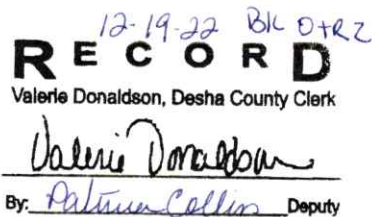 12-19-22 BK O+RZ
RECORD
Valerie Donaldson, Desha County Clerk
Valerie Donaldson
By: Patricia Collins Deputy